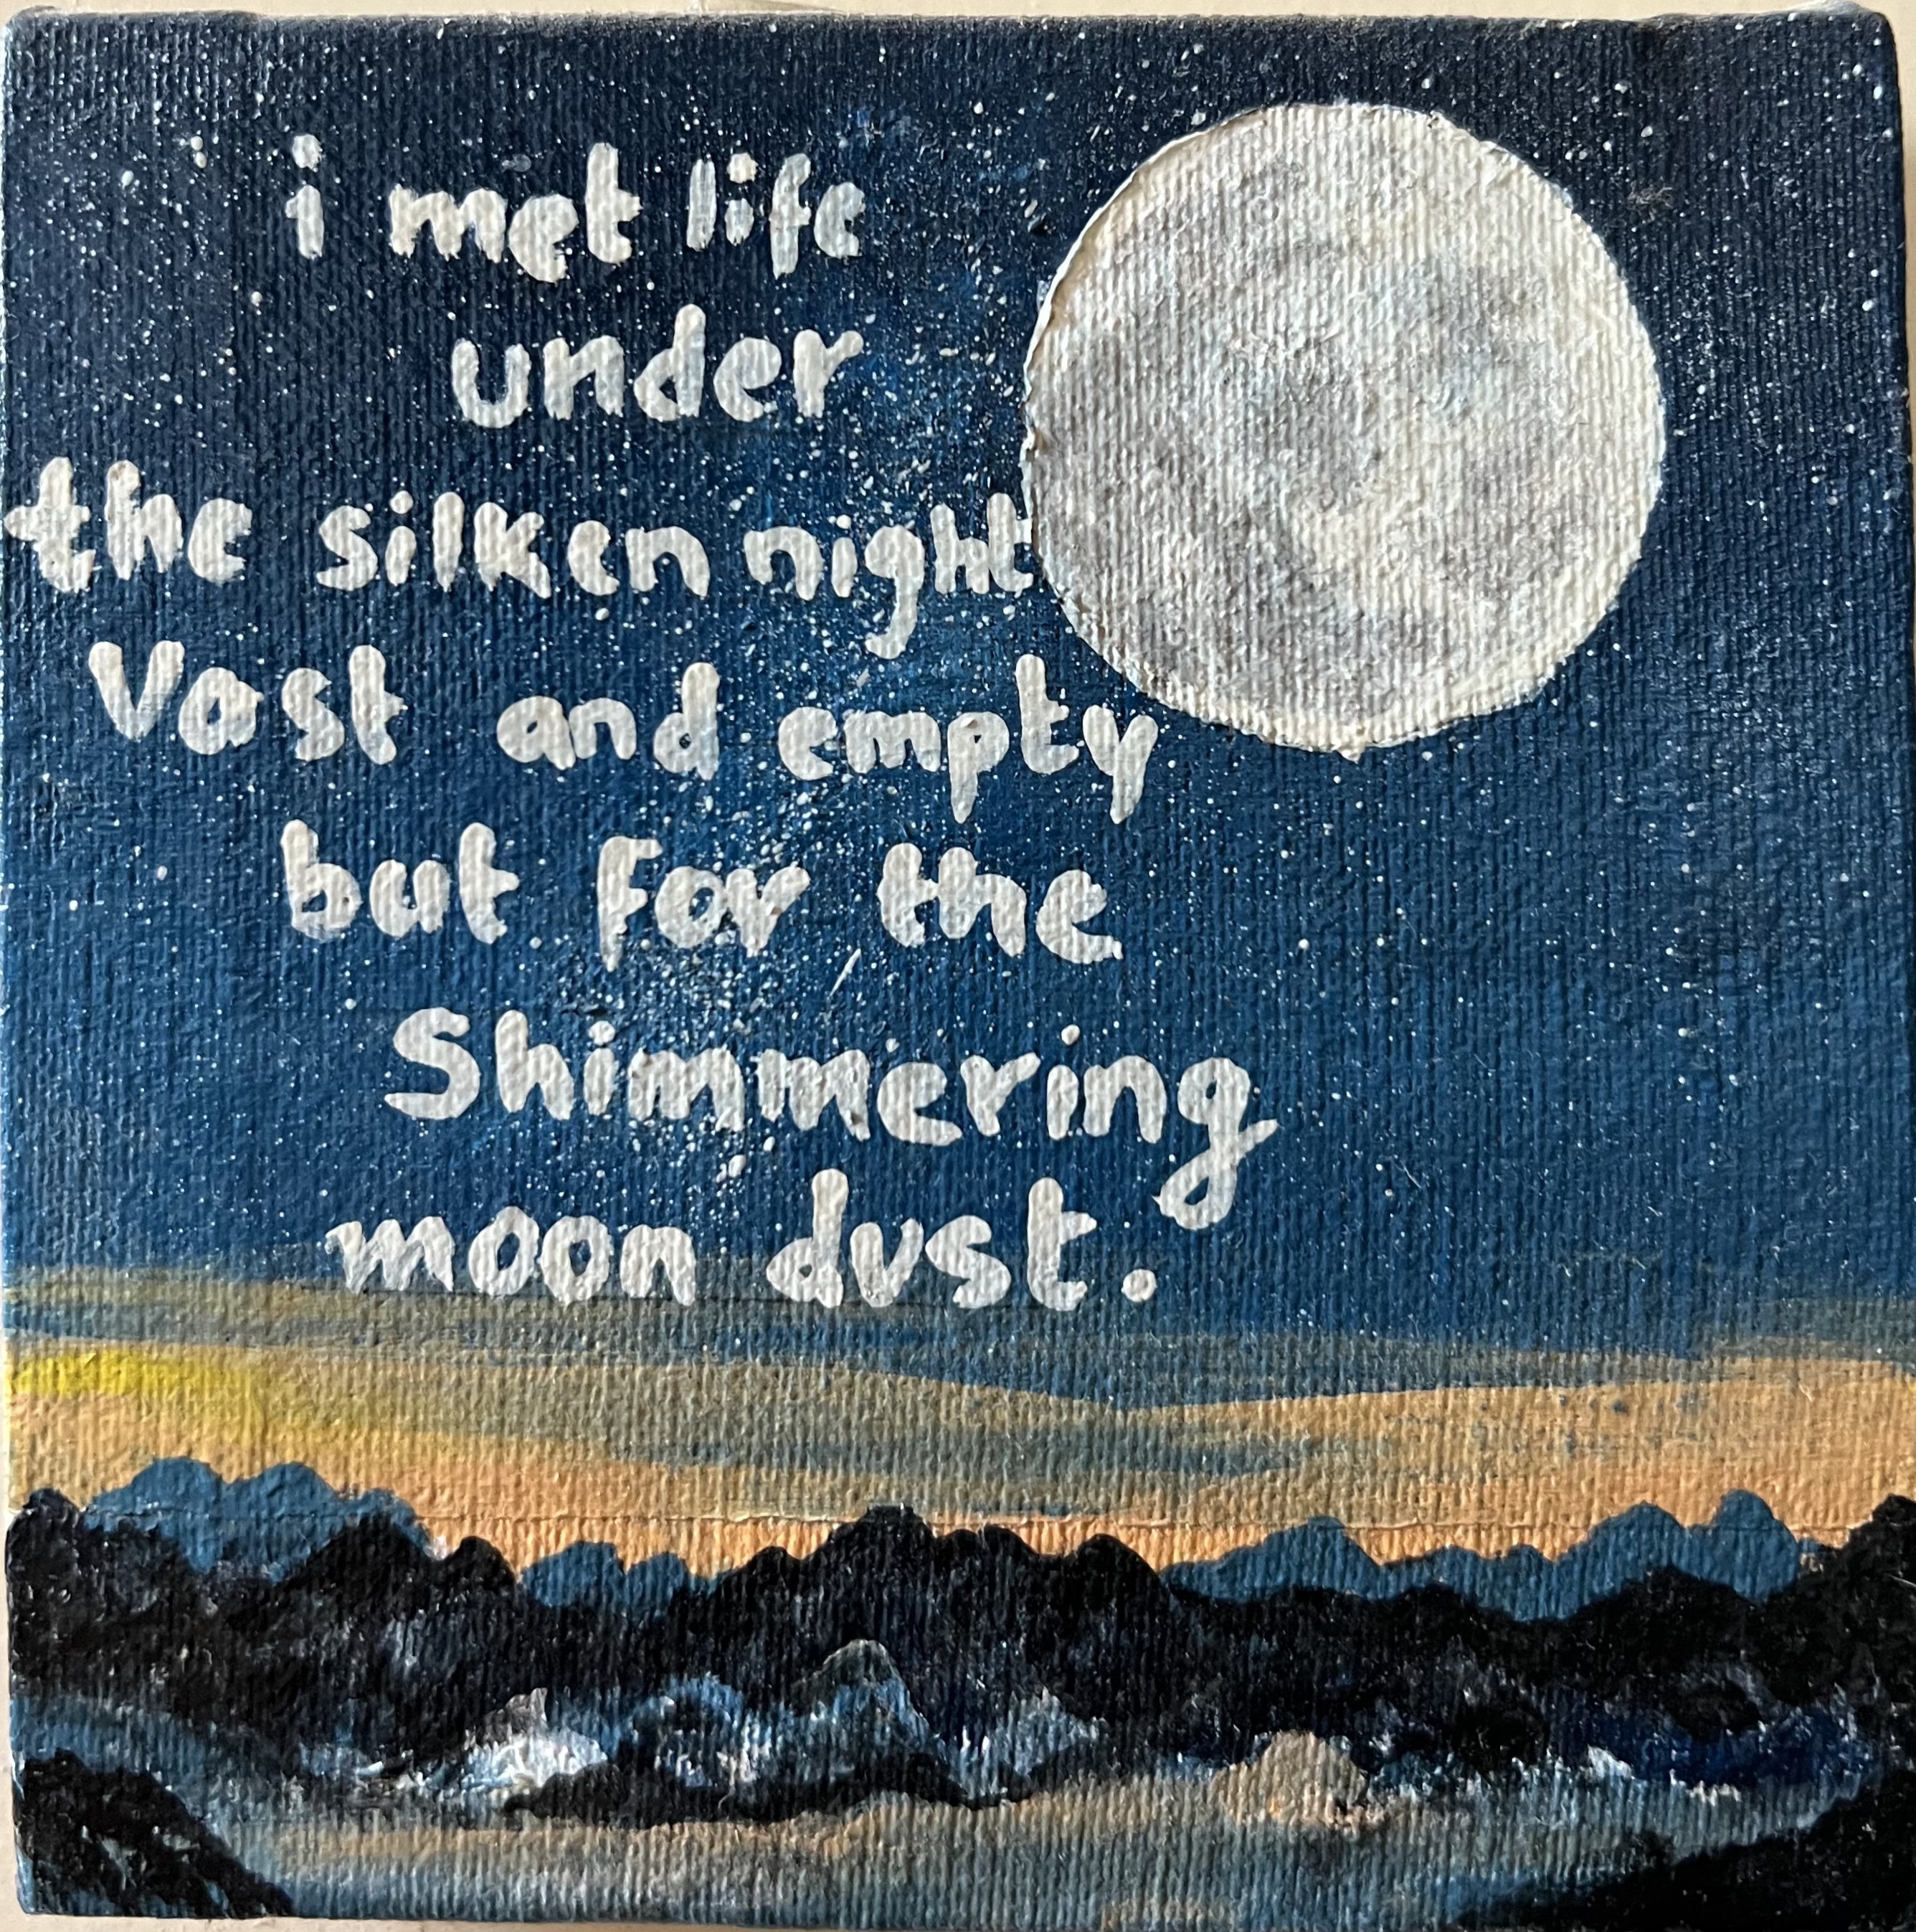 i met life
under
the silken night
Vast and empty
but for the
Shimmering
moon dust.